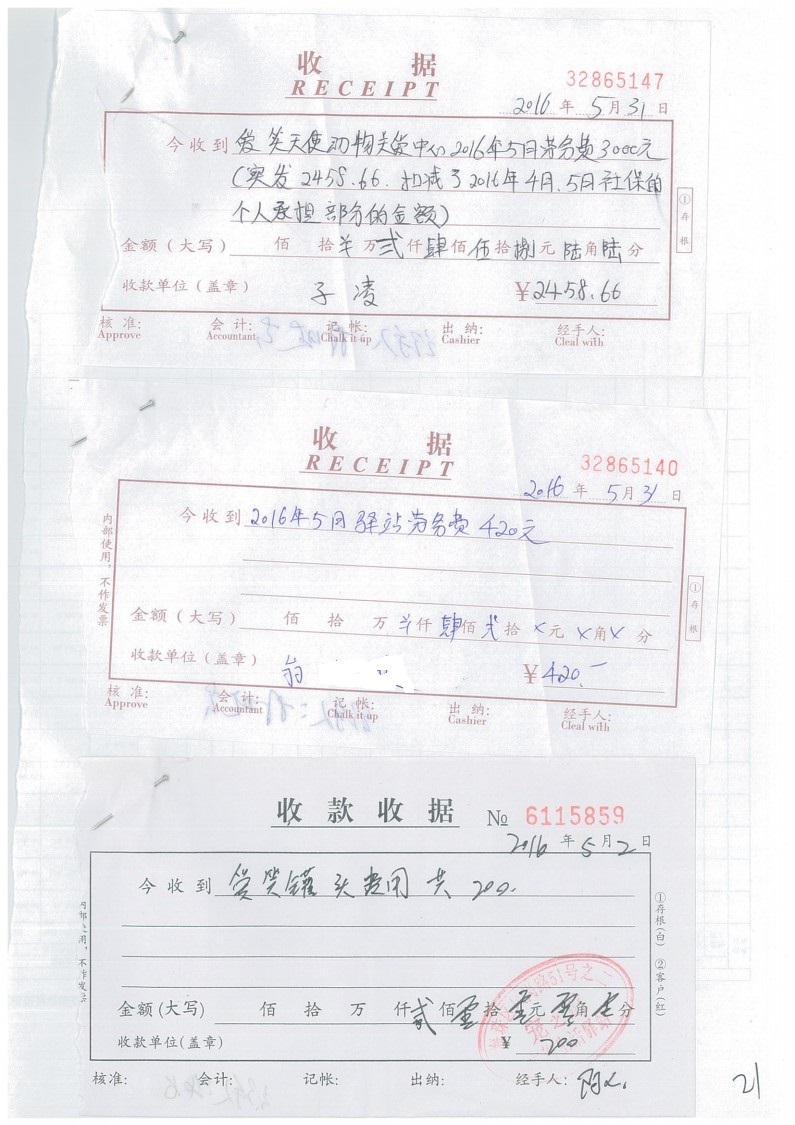 收 据
RECEIPT
32865147
2016 年 5 月 31 日
今收到 爱笑天使动物关爱中心2016年5月劳务费3000元
(实发 2458.66. 扣减了2016年4月、5月社保的
个人承担部分的金额)
①存根
金额（大写） 佰 拾 万 贰仟肆佰伍拾捌元陆角陆分
收款单位（盖章） 子凌 ￥2458.66
核准: 会计: 记帐: 出纳: 经手人:
Approve Accountant Chalk it up Cashier Cleal with
收 据
RECEIPT
32865140
2016 年 5 月 31 日
内部使用，不作发票
今收到 2016年5月驿站劳务费 420元
①存根
金额（大写） 佰 拾 万 仟肆佰贰拾×元×角×分
收款单位（盖章） ￥420.—
核准: 会计: 记帐: 出纳: 经手人:
Approve Accountant Chalk it up Cashier Cleal with
收款收据 № 6115859
2016 年 5 月 2 日
今收到 爱笑罐头费用 共 200.
①存根(白) ②客户(红)
金额(大写) 佰 拾 万 仟贰佰零拾零元零角零分
收款单位(盖章) ￥ 200
核准: 会计: 记帐: 出纳: 经手人:
21